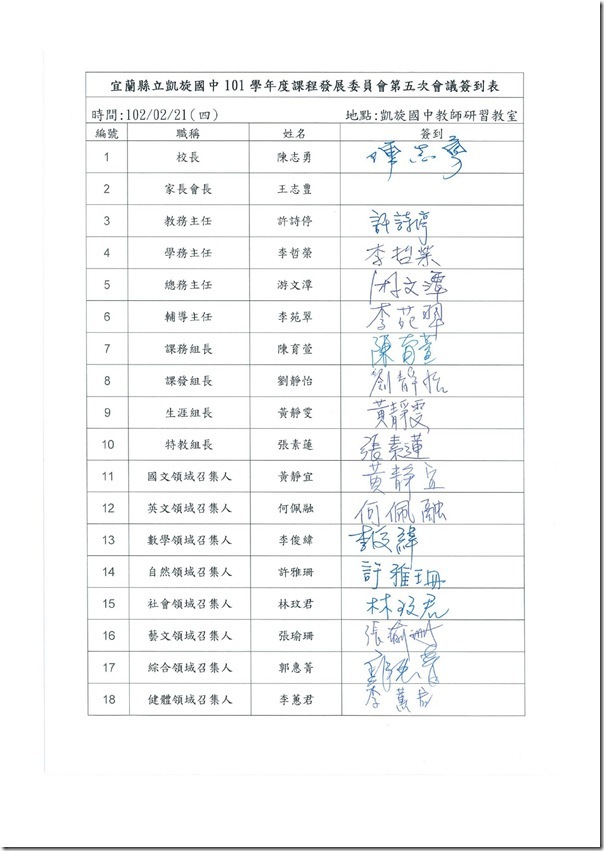 宜蘭縣立凱旋國中 101 學年度課程發展委員會第五次會議簽到表
時間:102/02/21(四) 地點:凱旋國中教師研習教室
編號 職稱 姓名 簽到
1 校長 陳志勇 陳志勇
2 家長會長 王志豊
3 教務主任 許詩停 許詩停
4 學務主任 李哲榮 李哲榮
5 總務主任 游文潭 游文潭
6 輔導主任 李苑翠 李苑翠
7 課務組長 陳育萱 陳育萱
8 課發組長 劉靜怡 劉靜怡
9 生涯組長 黃靜雯 黃靜雯
10 特教組長 張素蓮 張素蓮
11 國文領域召集人 黃靜宜 黃靜宜
12 英文領域召集人 何佩融 何佩融
13 數學領域召集人 李俊緯 李俊緯
14 自然領域召集人 許雅珊 許雅珊
15 社會領域召集人 林玟君 林玟君
16 藝文領域召集人 張瑜珊 張瑜珊
17 綜合領域召集人 郭惠菁 郭惠菁
18 健體領域召集人 李蕙君 李蕙君